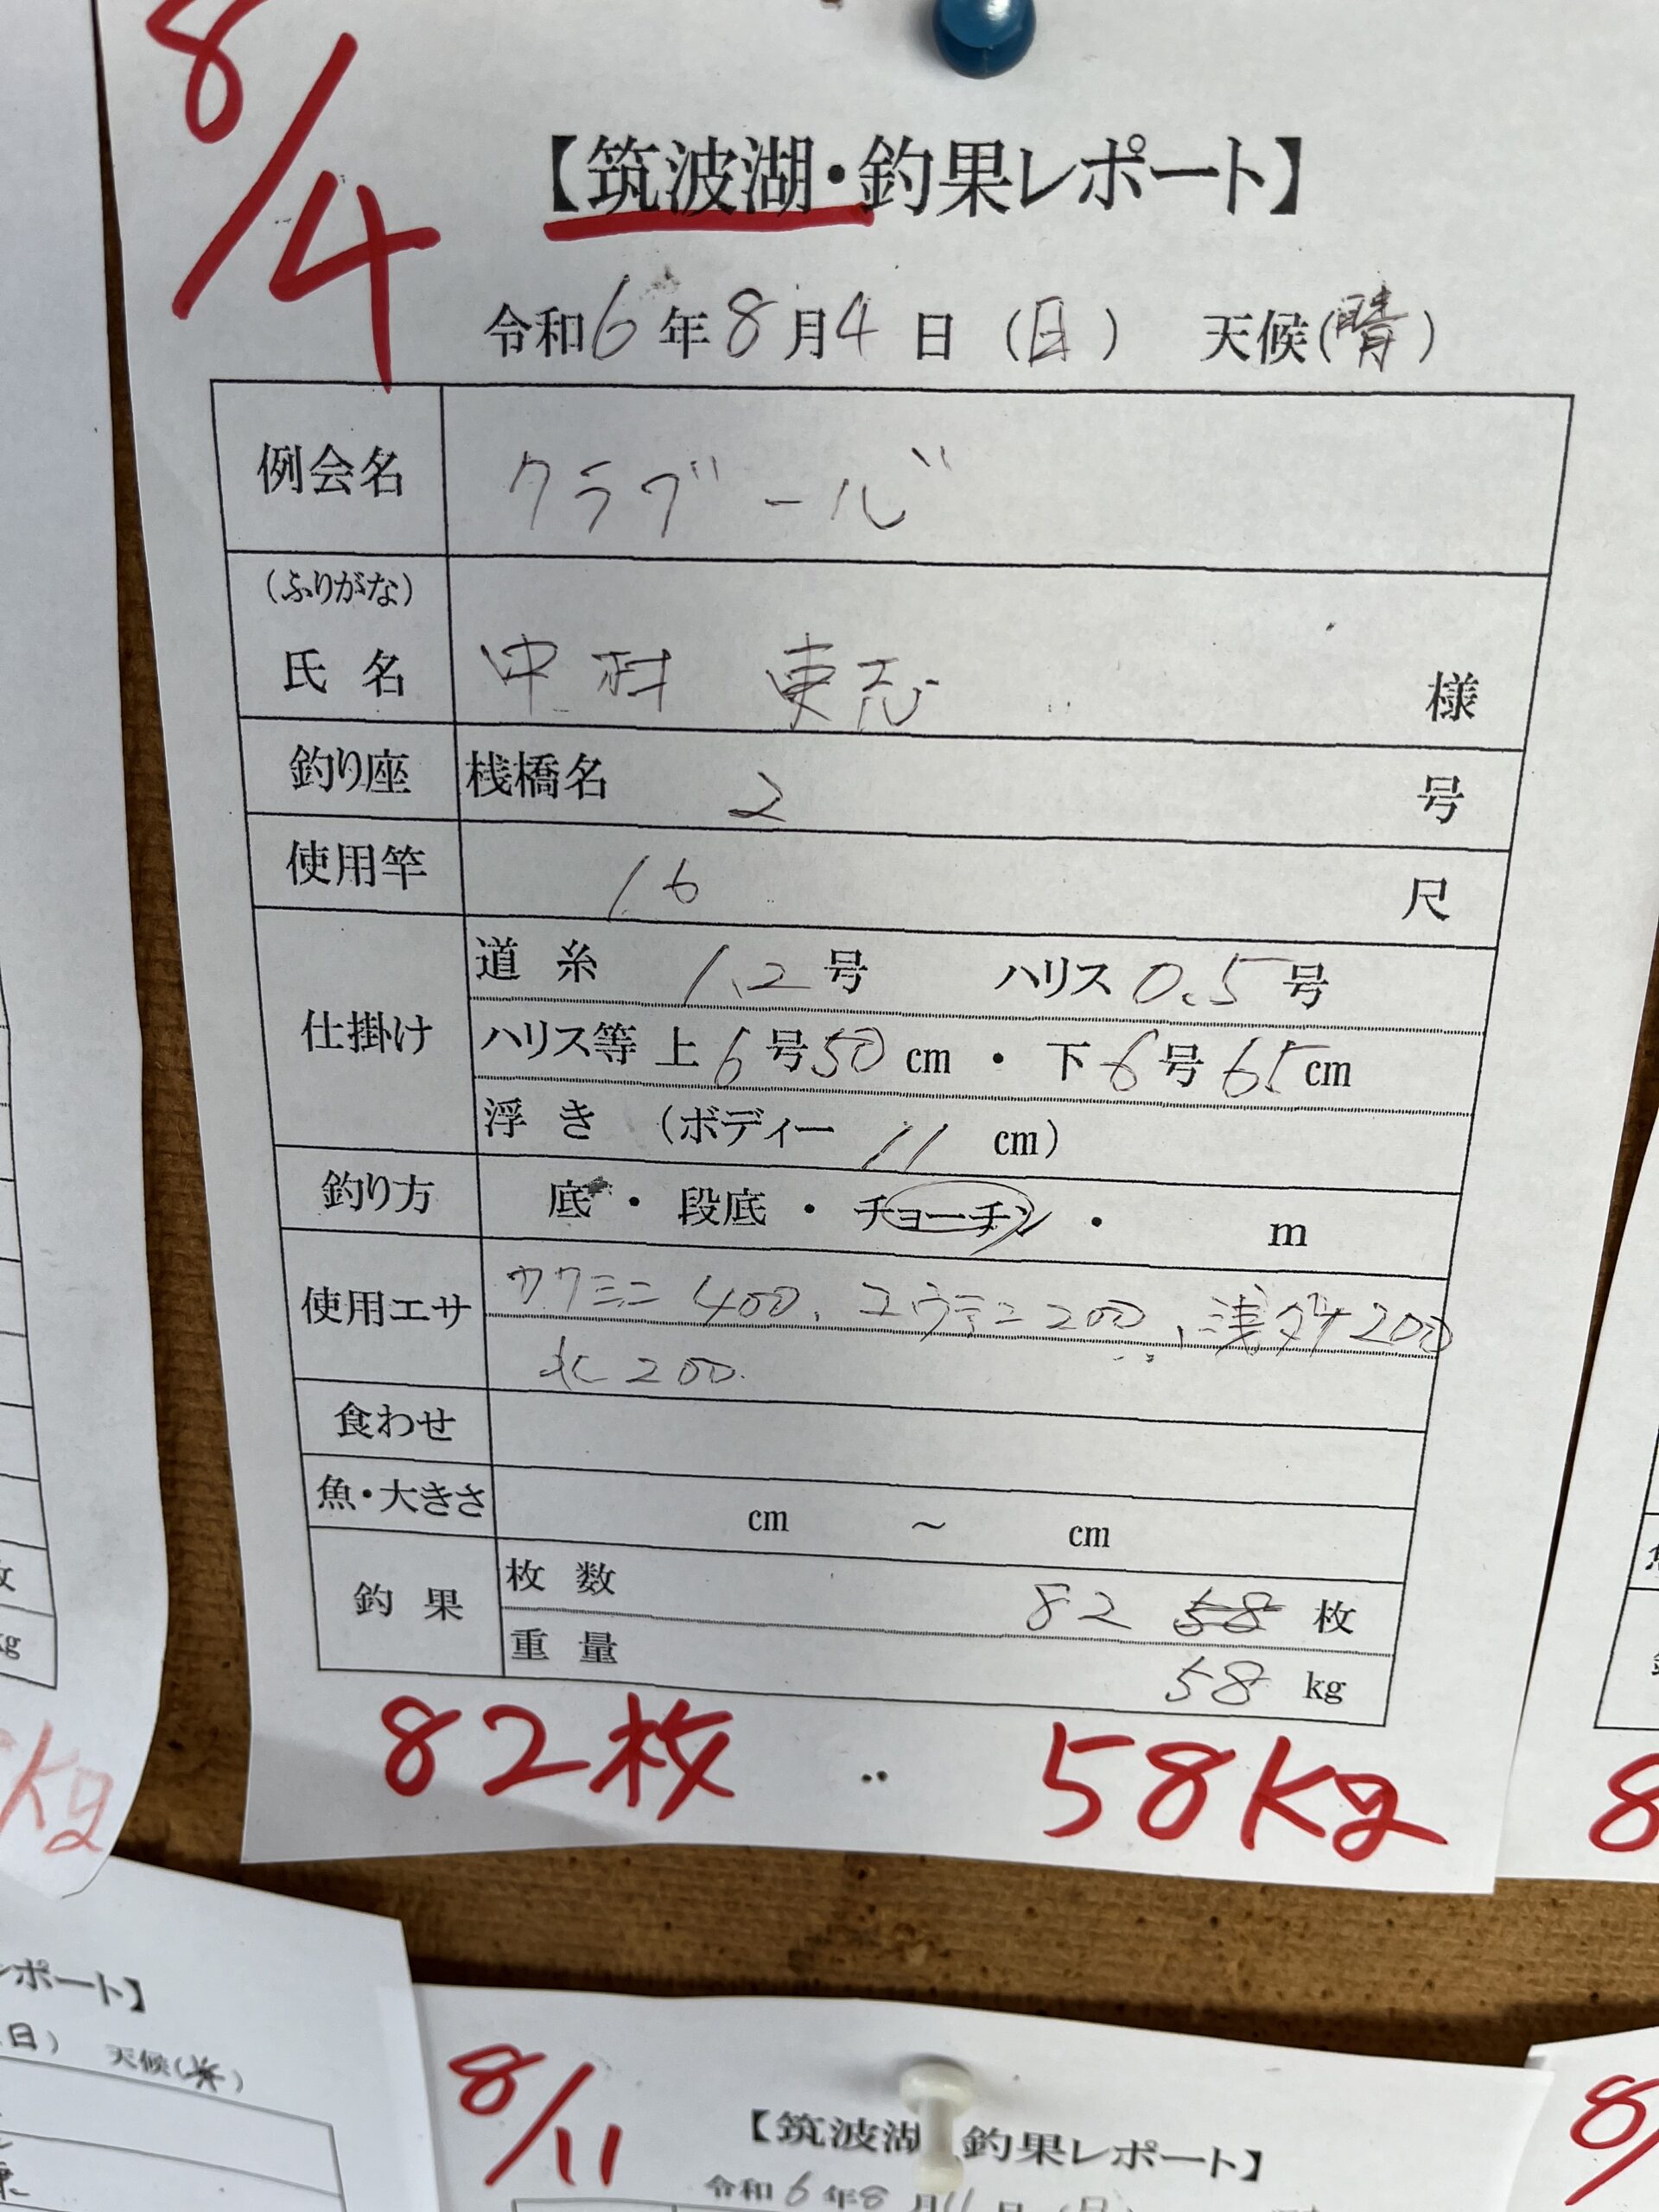 8/4
【筑波湖・釣果レポート】
令和6年8月4日（日） 天候（晴）
例会名 クラブールド
(ふりがな)
氏名 中村 東志 様
釣り座 桟橋名 2 号
使用竿 16 尺
仕掛け 道糸 1.2号 ハリス0.5号
ハリス等 上6号50cm ・ 下6号65cm
浮き （ボディー 11 cm）
釣り方 底 ・ 段底 ・ チョーチン ・ m
使用エサ カクミニ 400、コウテン200、浅ダナ200
水200.
食わせ
魚・大きさ cm ～ cm
釣果 枚数 82 58 枚
重量 58 kg
82枚 58Kg
枚
kg
Kg
レポート】
日） 天候（
8/11
【筑波湖 釣果レポート】
令和6年8月11日（日）
8
8/